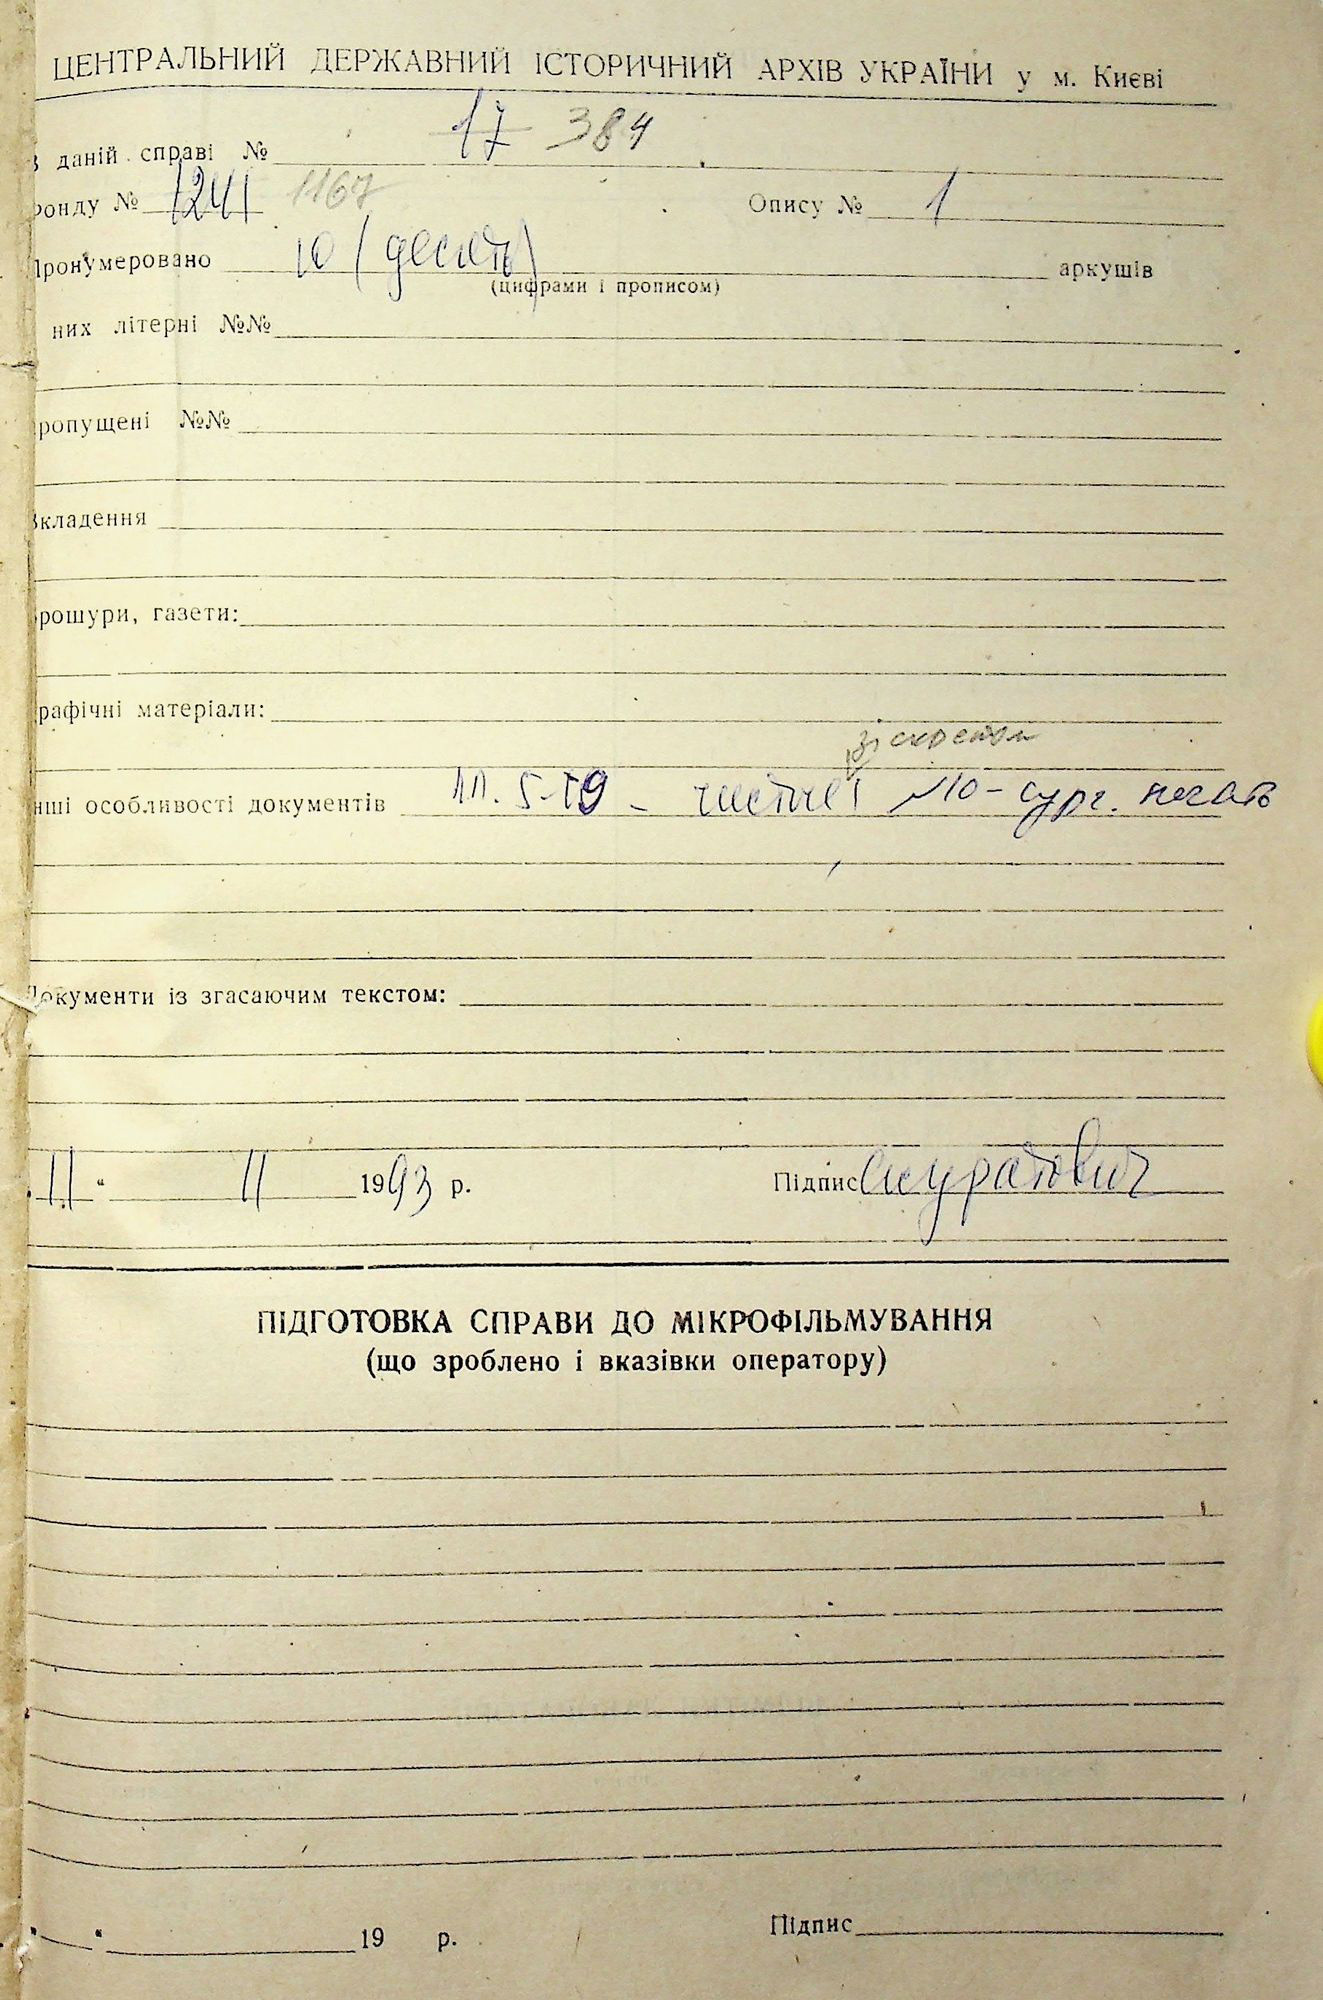 ЦЕНТРАЛЬНИЙ ДЕРЖАВНИЙ ІСТОРИЧНИЙ АРХІВ УКРАЇНИ у м. Києві
В даній справі № 17 384
Фонду № 1241 1167 Опису № 1
Пронумеровано 10 (десять) аркушів
(цифрами і прописом)
них літерні №№
ропущені №№
вкладення
рошури, газети:
рафічні матеріали:
нші особливості документів 5-19 - чисті 10 - сург. печать
Документи із згасаючим текстом:
11 " 11 1993 р. Підпис Скуратович
ПІДГОТОВКА СПРАВИ ДО МІКРОФІЛЬМУВАННЯ
(що зроблено і вказівки оператору)
" " 19 р. Підпис